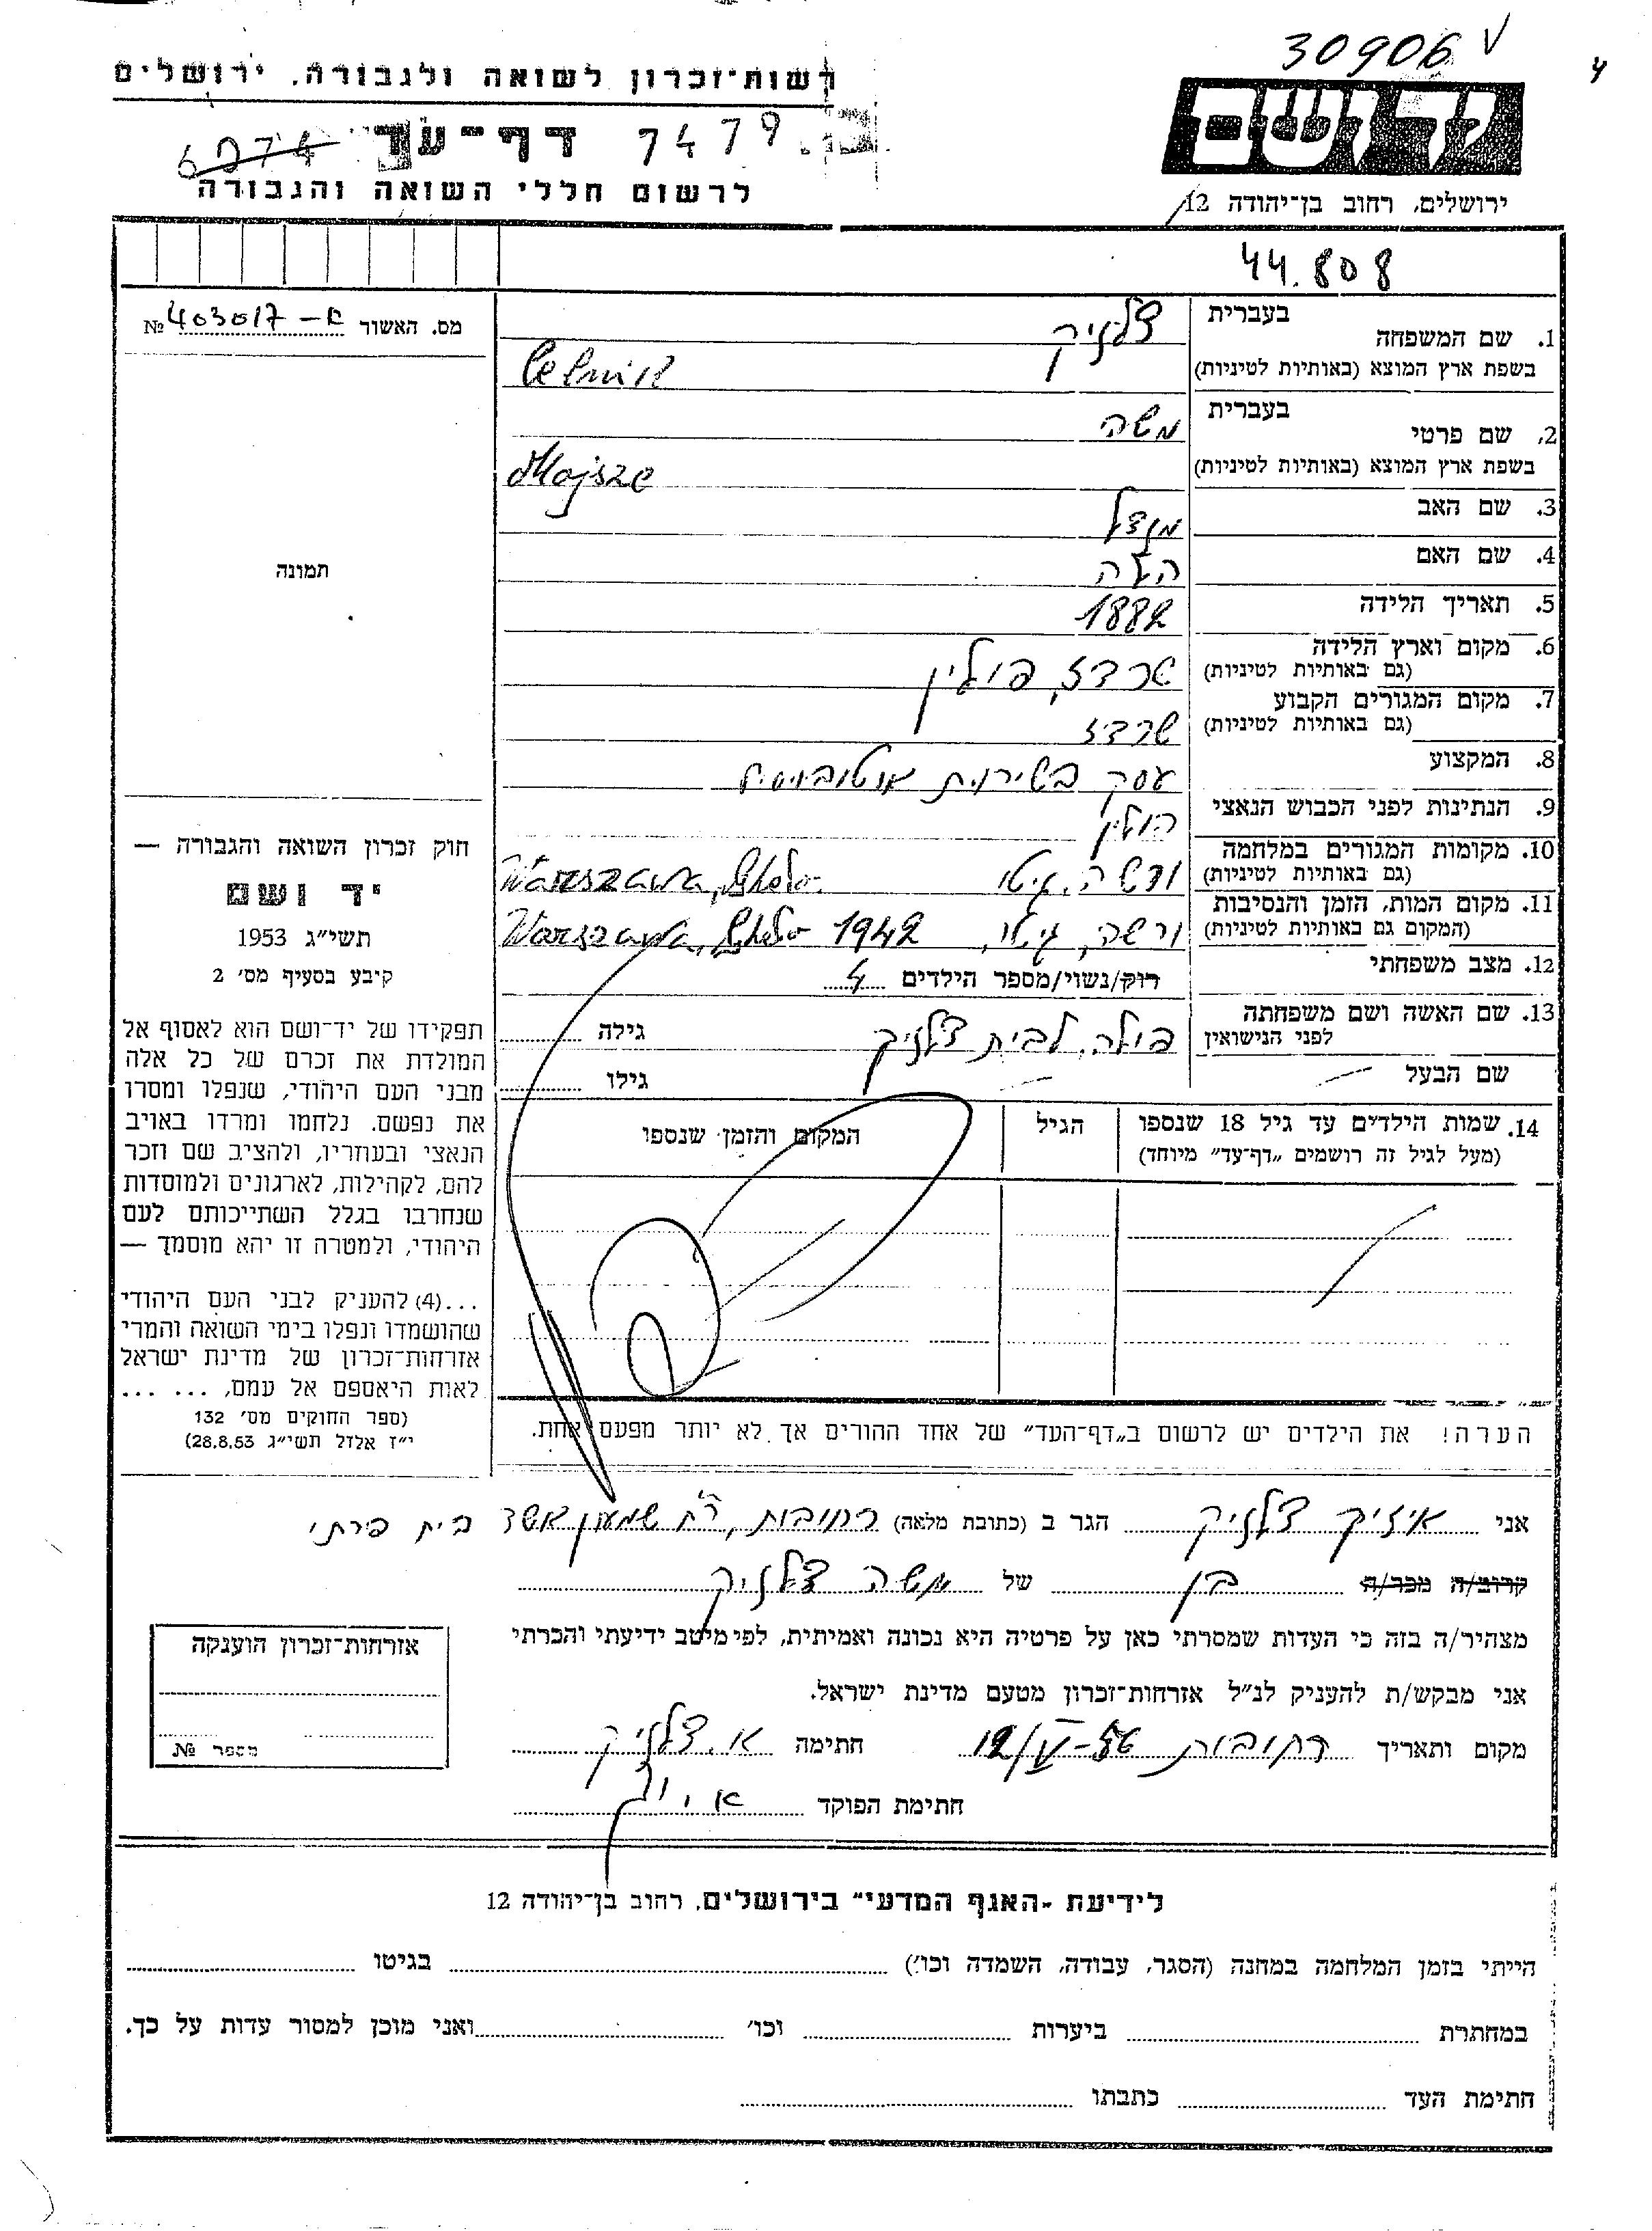 30906 √
4
רשות־זכרון לשואה ולגבורה, ירושלים
דף־עד 7479
6274
לרשום חללי השואה והגבורה
ושם
ירושלים, רחוב בן־יהודה 12
44.808
מס. האשור 403017 – א №
תמונה
1. שם המשפחה בעברית צלניק
בשפת ארץ המוצא (באותיות לטיניות) Celnik
2. שם פרטי בעברית משה
בשפת ארץ המוצא (באותיות לטיניות) Mojsze
3. שם האב מנדל
4. שם האם
5. תאריך הלידה 1882
6. מקום וארץ הלידה שרדז, פולין
(גם באותיות לטיניות)
7. מקום המגורים הקבוע שרדז
(גם באותיות לטיניות)
8. המקצוע עסק בשירות אוטובוסים
9. הנתינות לפני הכבוש הנאצי פולין
10. מקומות המגורים במלחמה ורשה, גיטו Warszawa, Ghetto
(גם באותיות לטיניות)
11. מקום המות, הזמן והנסיבות ורשה, גיטו, 1942 Warszawa, Ghetto
(המקום גם באותיות לטיניות)
12. מצב משפחתי רוק/נשוי/מספר הילדים 4
13. שם האשה ושם משפחתה לפני הנישואין פולה, לבית צלניק גילה
שם הבעל גילו
14. שמות הילדים עד גיל 18 שנספו הגיל המקום והזמן שנספו
(מעל לגיל זה רושמים „דף־עד״ מיוחד)
הערה! את הילדים יש לרשום ב„דף־העד״ של אחד ההורים אך לא יותר מפעם אחת.
חוק זכרון השואה והגבורה —
יד ושם
תשי״ג 1953
קיבע בסעיף מס׳ 2
תפקידו של יד־ושם הוא לאסוף אל
המולדת את זכרם של כל אלה
מבני העם היהודי, שנפלו ומסרו
את נפשם, נלחמו ומרדו באויב
הנאצי ובעוזריו, ולהציב שם וזכר
להם, לקהילות, לארגונים ולמוסדות
שנחרבו בגלל השתייכותם לעם
היהודי, ולמטרה זו יהא מוסמך —
...(4) להעניק לבני העם היהודי
שהושמדו ונפלו בימי השואה והמרי
אזרחות־זכרון של מדינת ישראל
לאות היאספם אל עמם, ... ...
(ספר החוקים מס׳ 132
י״ז אלול תשי״ג 28.8.53)
אני איזיק צלניק הגר ב (כתובת מלאה) רחובות, רח׳ שמעון בית פרתי
קרוב/ה מכר/ה בן של משה צלניק
מצהיר/ה בזה כי העדות שמסרתי כאן על פרטיה היא נכונה ואמיתית, לפי מיטב ידיעתי והכרתי
אני מבקש/ת להעניק לנ״ל אזרחות־זכרון מטעם מדינת ישראל.
מקום ותאריך רחובות 12/V-56 חתימה א. צלניק
חתימת הפוקד
אזרחות־זכרון הוענקה
מספר №
לידיעת „האגף המדעי״ בירושלים, רחוב בן־יהודה 12
הייתי בזמן המלחמה במחנה (הסגר, עבודה, השמדה וכו׳) בגיטו
במחתרת ביערות וכו׳ ואני מוכן למסור עדות על כך.
חתימת העד כתבתו